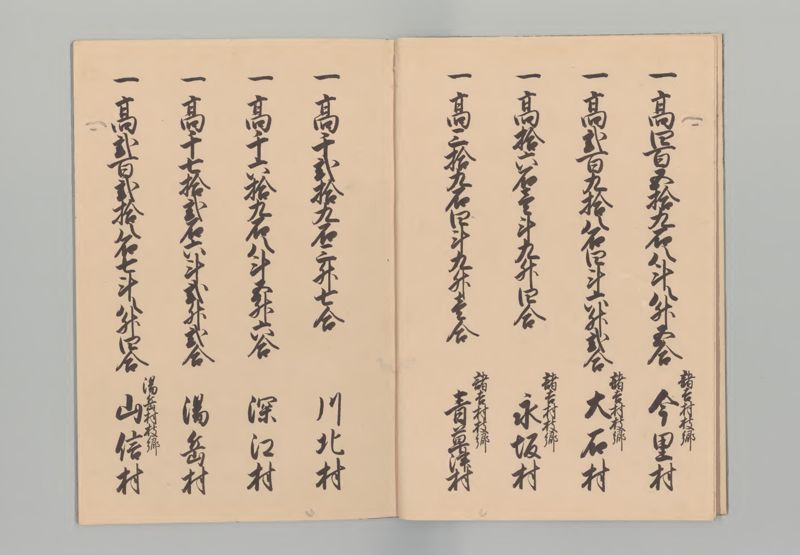 一 高四百五拾九石八斗八升五合 諸吉村枝郷 今里村
一 高弐百九拾八石四斗六升弐合 諸吉村枝郷 大石村
一 高拾六石壱斗九升四合 諸吉村枝郷 永坂村
一 高三拾九石四斗九升壱合 諸吉村枝郷 青草津村
一 高千弐拾九石三升七合 川北村
一 高千六拾九石八斗五升六合 深江村
一 高千七拾弐石六斗弐升弐合 湯岳村
一 高弐百弐拾八石七斗八升四合 湯岳村枝郷 山信村